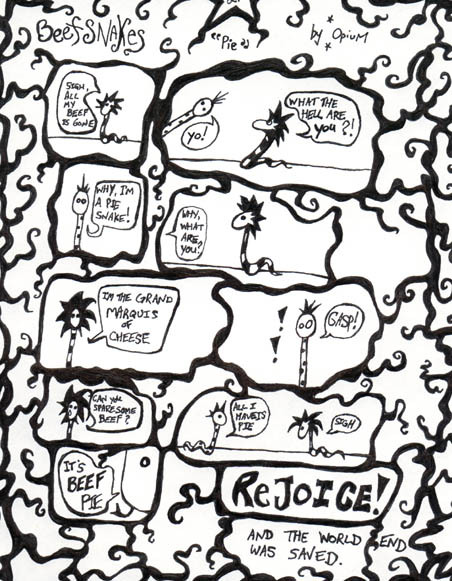 BeefSNAKes
"Pie"
by *OpiuM*
SIGH,
ALL
MY
BEEF
IS GONE
yo!
WHAT THE
HELL ARE
you?!
WHY, I'M
A PIE
SNAKE!
WHY,
WHAT
ARE
YOU?
I'M THE GRAND
MARQUIS
OF
CHEESE
! !
GASP!
CAN you
SPARE SOME
BEEF?
ALL I
HAVE IS
PIE
SIGH
It's
BEEF
PIE
ReJOICE!
AND THE WORLD
WAS SAVED.
END